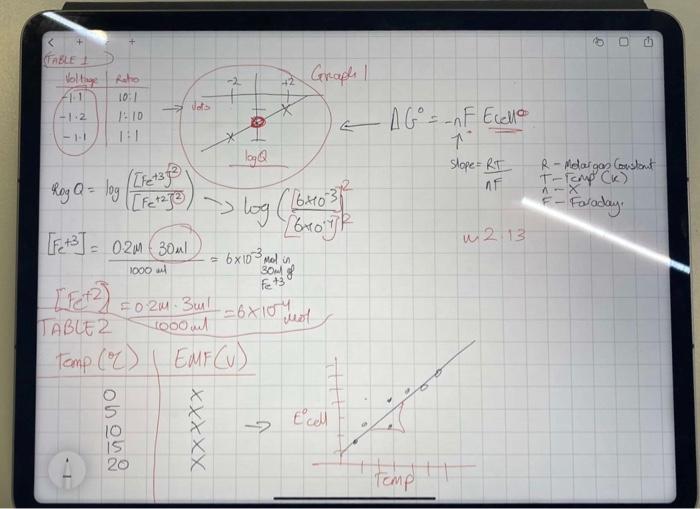 TABLE 1
Voltage | Ratio
-1.1 | 10:1
-1.2 | 1:10
-1.1 | 1:1
Graph 1
-2 +2
Volts
log Q
ΔG° = -nF Ecell°
Slope = RT / nF
R - Molar gas Constant
T - Temp (K)
n - X
F - Faraday.
Log Q = log ([Fe+3]² / [Fe+2]²) → log ([6x10-3]² / [6x10-4]²)
[Fe+3] = 0.2M . 30ml / 1000 ml = 6x10-3 mol in
30ml of
Fe+3
2.13
[Fe+2] = 0.2M . 3ml / 1000ml = 6x10-4 mol
TABLE 2
Temp (°C) | EMF (V)
0 X
5 X
10 X
15 X
20 X
E°cell
Temp